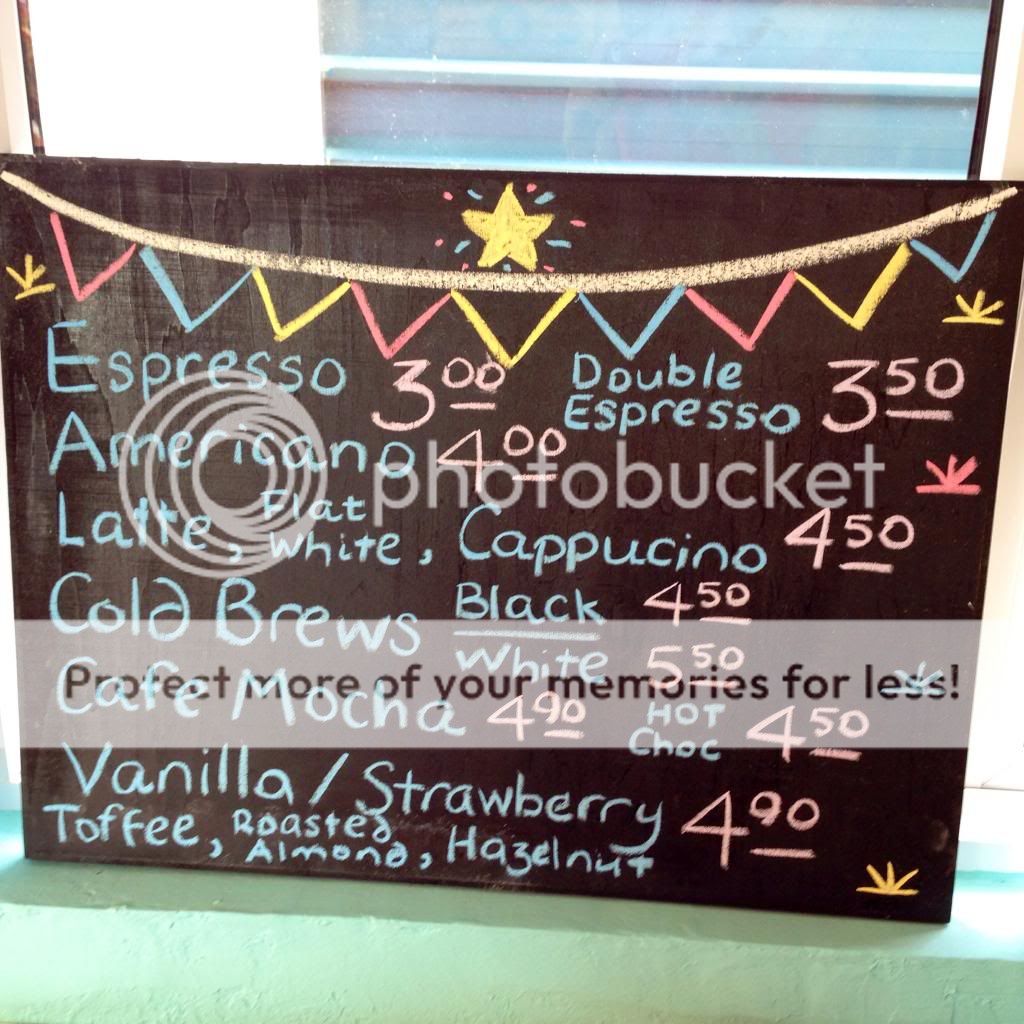 Espresso 3.00 Double Espresso 3.50
Americano 4.00
photobucket
Latte, Flat White, Cappucino 4.50
Cold Brews Black 4.50
White 5.50
Protect more of your memories for less!
Cafe Mocha 4.90 HOT Choc 4.50
Vanilla / Strawberry 4.90
Toffee, Roasted Almond, Hazelnut